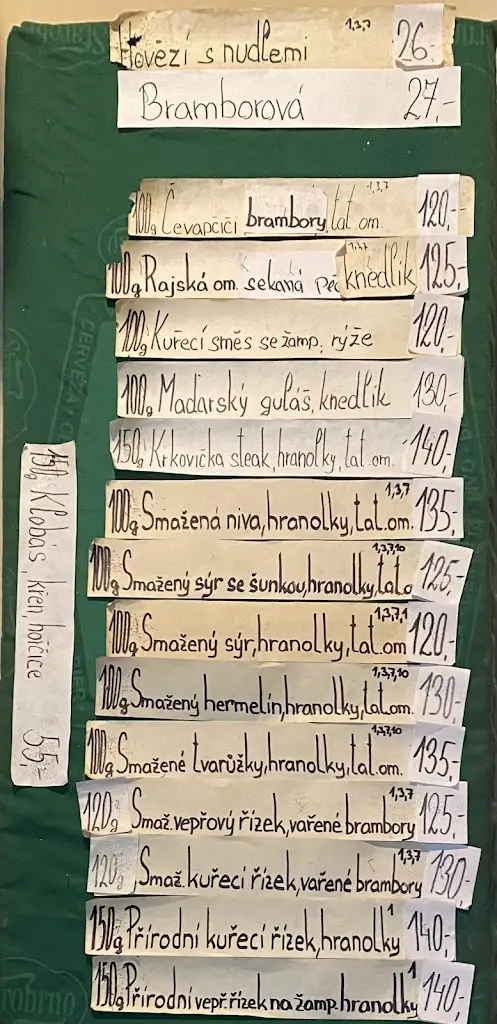 Hovězí s nudlemi 1,3,7 26.-
Bramborová 27,-
100g Čevapčiči brambory, tat. om. 1,3,7 120,-
100g Rajská om. sekaná peč knedlík 1,3,7 125,-
100g Kuřecí směs se žamp. rýže 120,-
100g Maďarský guláš, knedlík 130,-
150g Krkovička steak, hranolky, tat. om. 140,-
100g Smažená niva, hranolky, tat. om. 1,3,7 135,-
100g Smažený sýr se šunkou, hranolky, tat o 1,3,7,10 125,-
100g Smažený sýr, hranolky, tat. om 1,3,7,1 120,-
100g Smažený hermelín, hranolky, tat. om. 1,3,7,10 130,-
100g Smažené tvarůžky, hranolky, tat. om. 1,3,7,10 135,-
120g Smaž. vepřový řízek, vařené brambory 1,3,7 125,-
120g Smaž. kuřecí řízek, vařené brambory 1,3,7 130,-
150g Přírodní kuřecí řízek, hranolky 1 140,-
150g Přírodní vepř. řízek na žamp. hranolky 1 140,-
150g Klobás, křen, hořčice 55,-